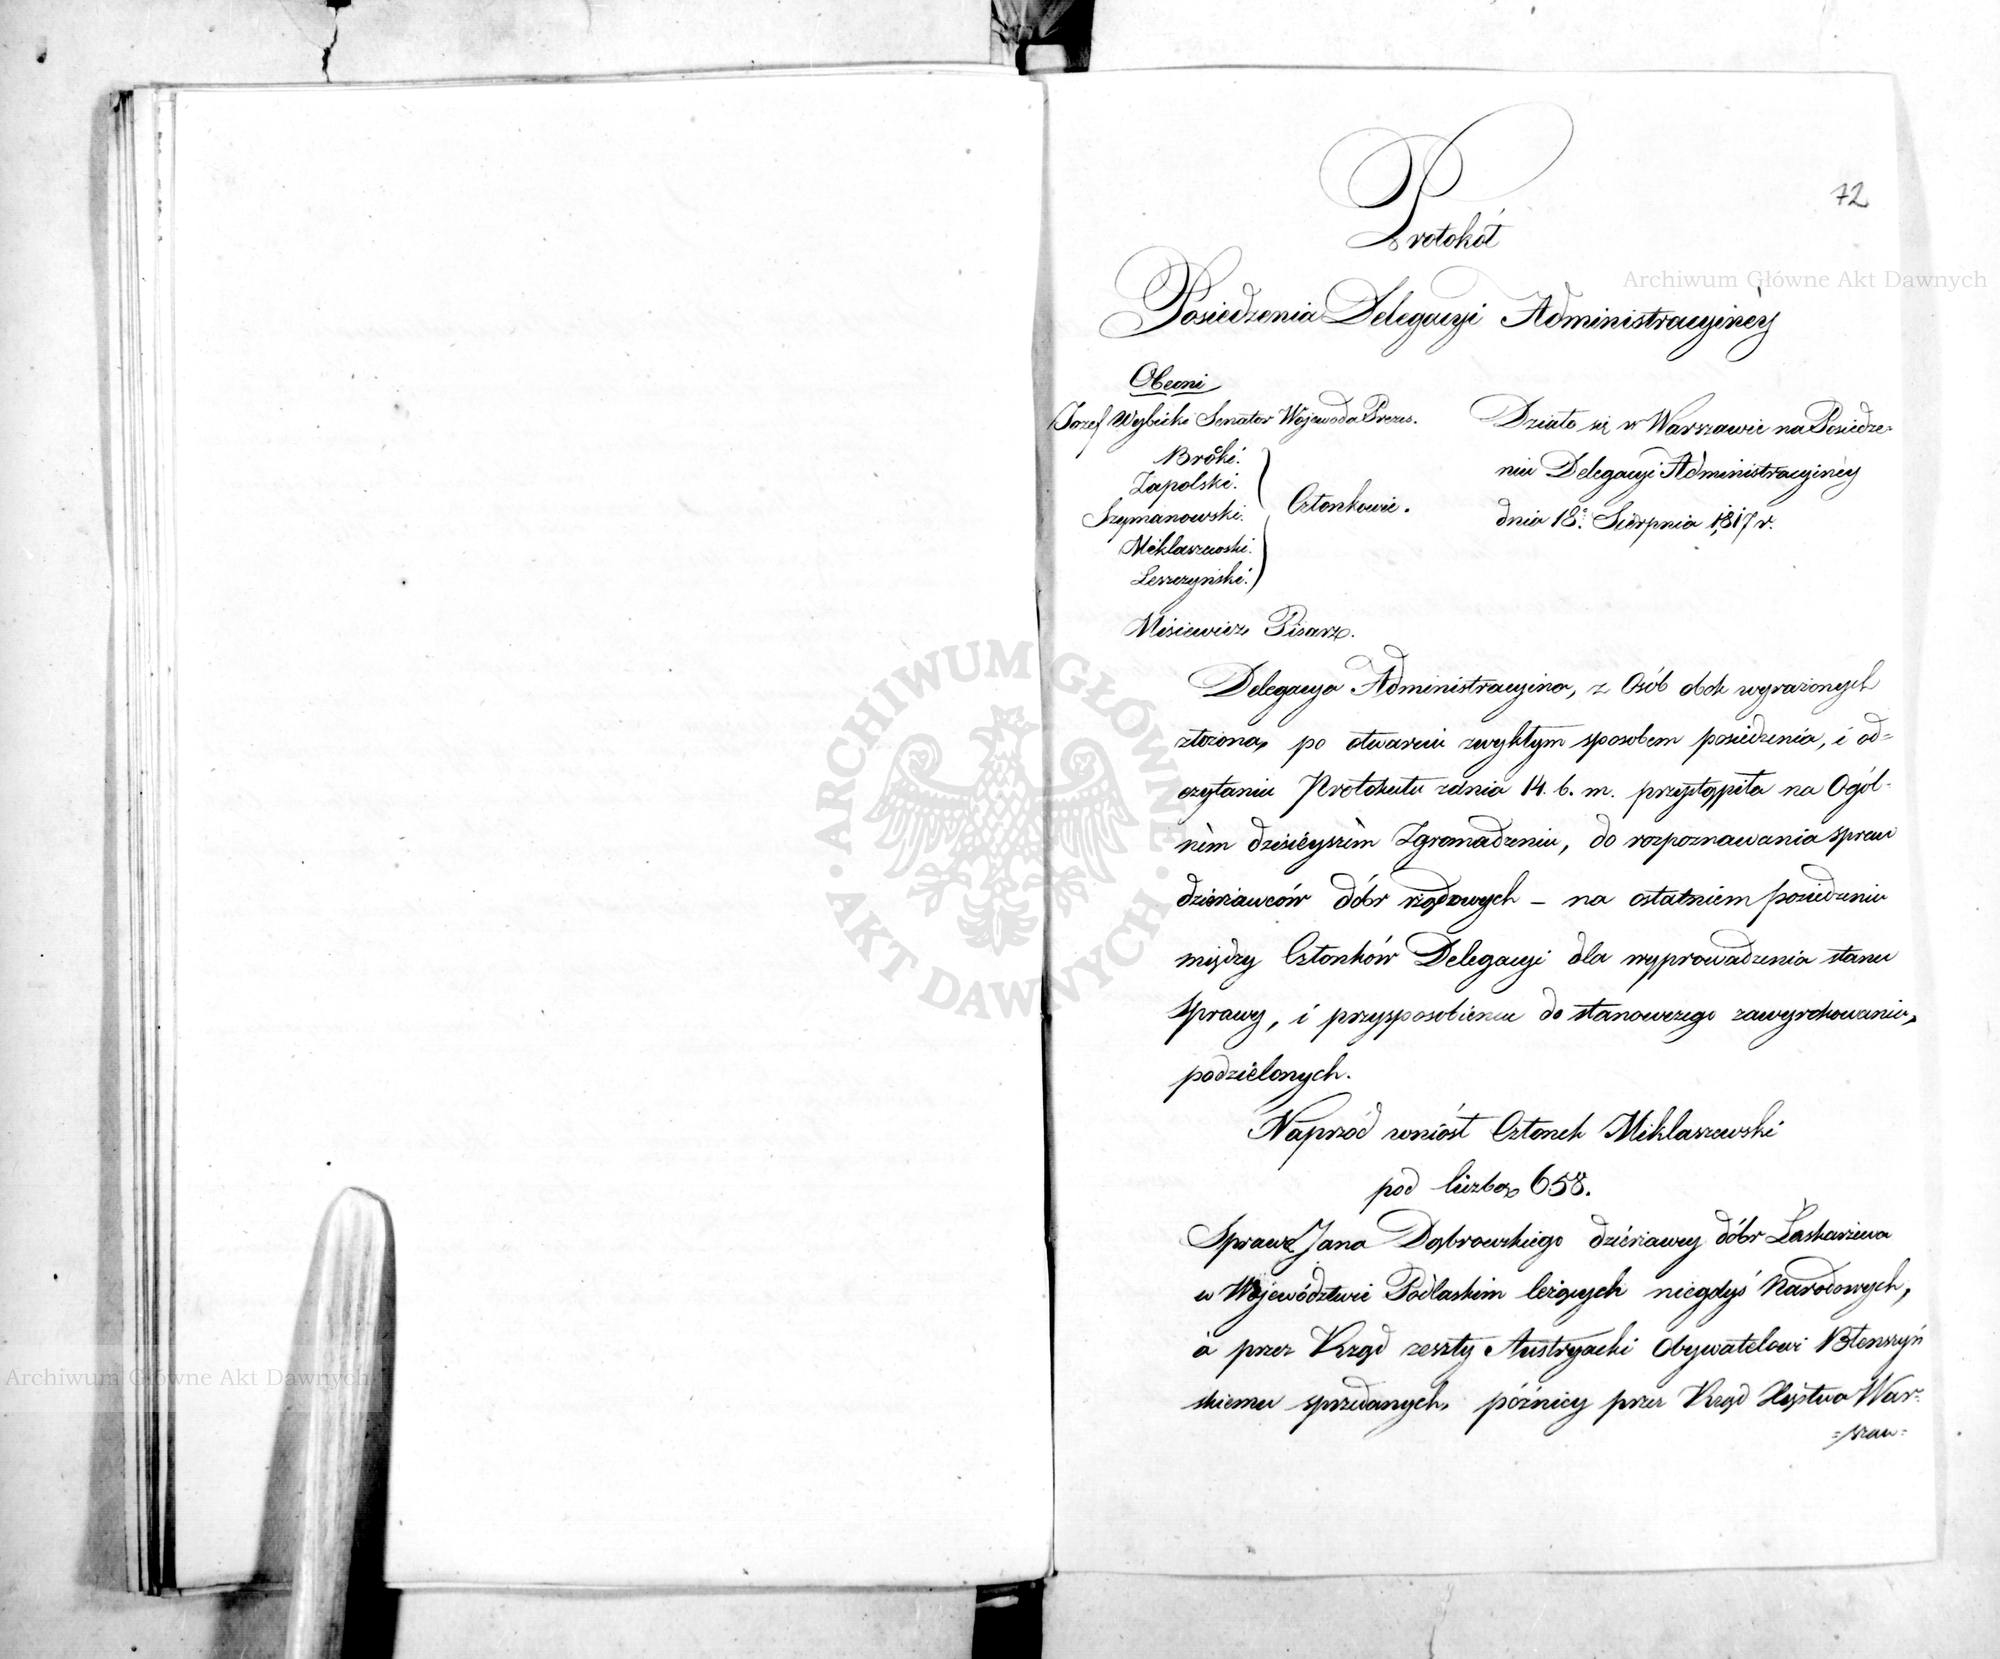 72
Protokół
Posiedzenia Delegacyi Administracyinéy
Obecni
Jozef Wybicki Senator Wojewoda Prezes.
Brocki.
Zapolski.
Szymanowski.
Miklaszewski.
Leszczyński.
Członkowie.
Misiewicz Pisarz.
Działo się w Warszawie na Posiedze-
niu Delegacyi Administracyinéy
dnia 18. Sierpnia 1817 r.
Delegacya Administracyina, z Osób obok wyrażonych
złożona, po otwarciu zwykłym sposobem posiedzenia, i od=
czytaniu Protokułu z dnia 14. b. m. przystąpiła na Ogól-
nèm dzisiéyszèm Zgromadzeniu, do rozpoznawania spraw
dzierżawców dóbr rządowych – na ostatniem posiedzeniu
między Członków Delegacyi dla wyprowadzenia stanu
sprawy, i przysposobienia do stanowczego zawyrokowania,
podzielonych.
Naprzód wniósł Członek Miklaszewski
pod liczbą 658.
Sprawę Jana Dąbrowskiego dzierżawcy dóbr Łaskarzewa
w Województwie Podlaskim leżących niegdyś Narodowych,
a przez Rząd zeszły Austryacki Obywatelowi Błenszyń
skiemu sprzedanych, późniey przez Rząd Xięstwa War-
=szaw=
Archiwum Główne Akt Dawnych
Archiwum Główne Akt Dawnych
ARCHIWUM GŁÓWNE AKT DAWNYCH